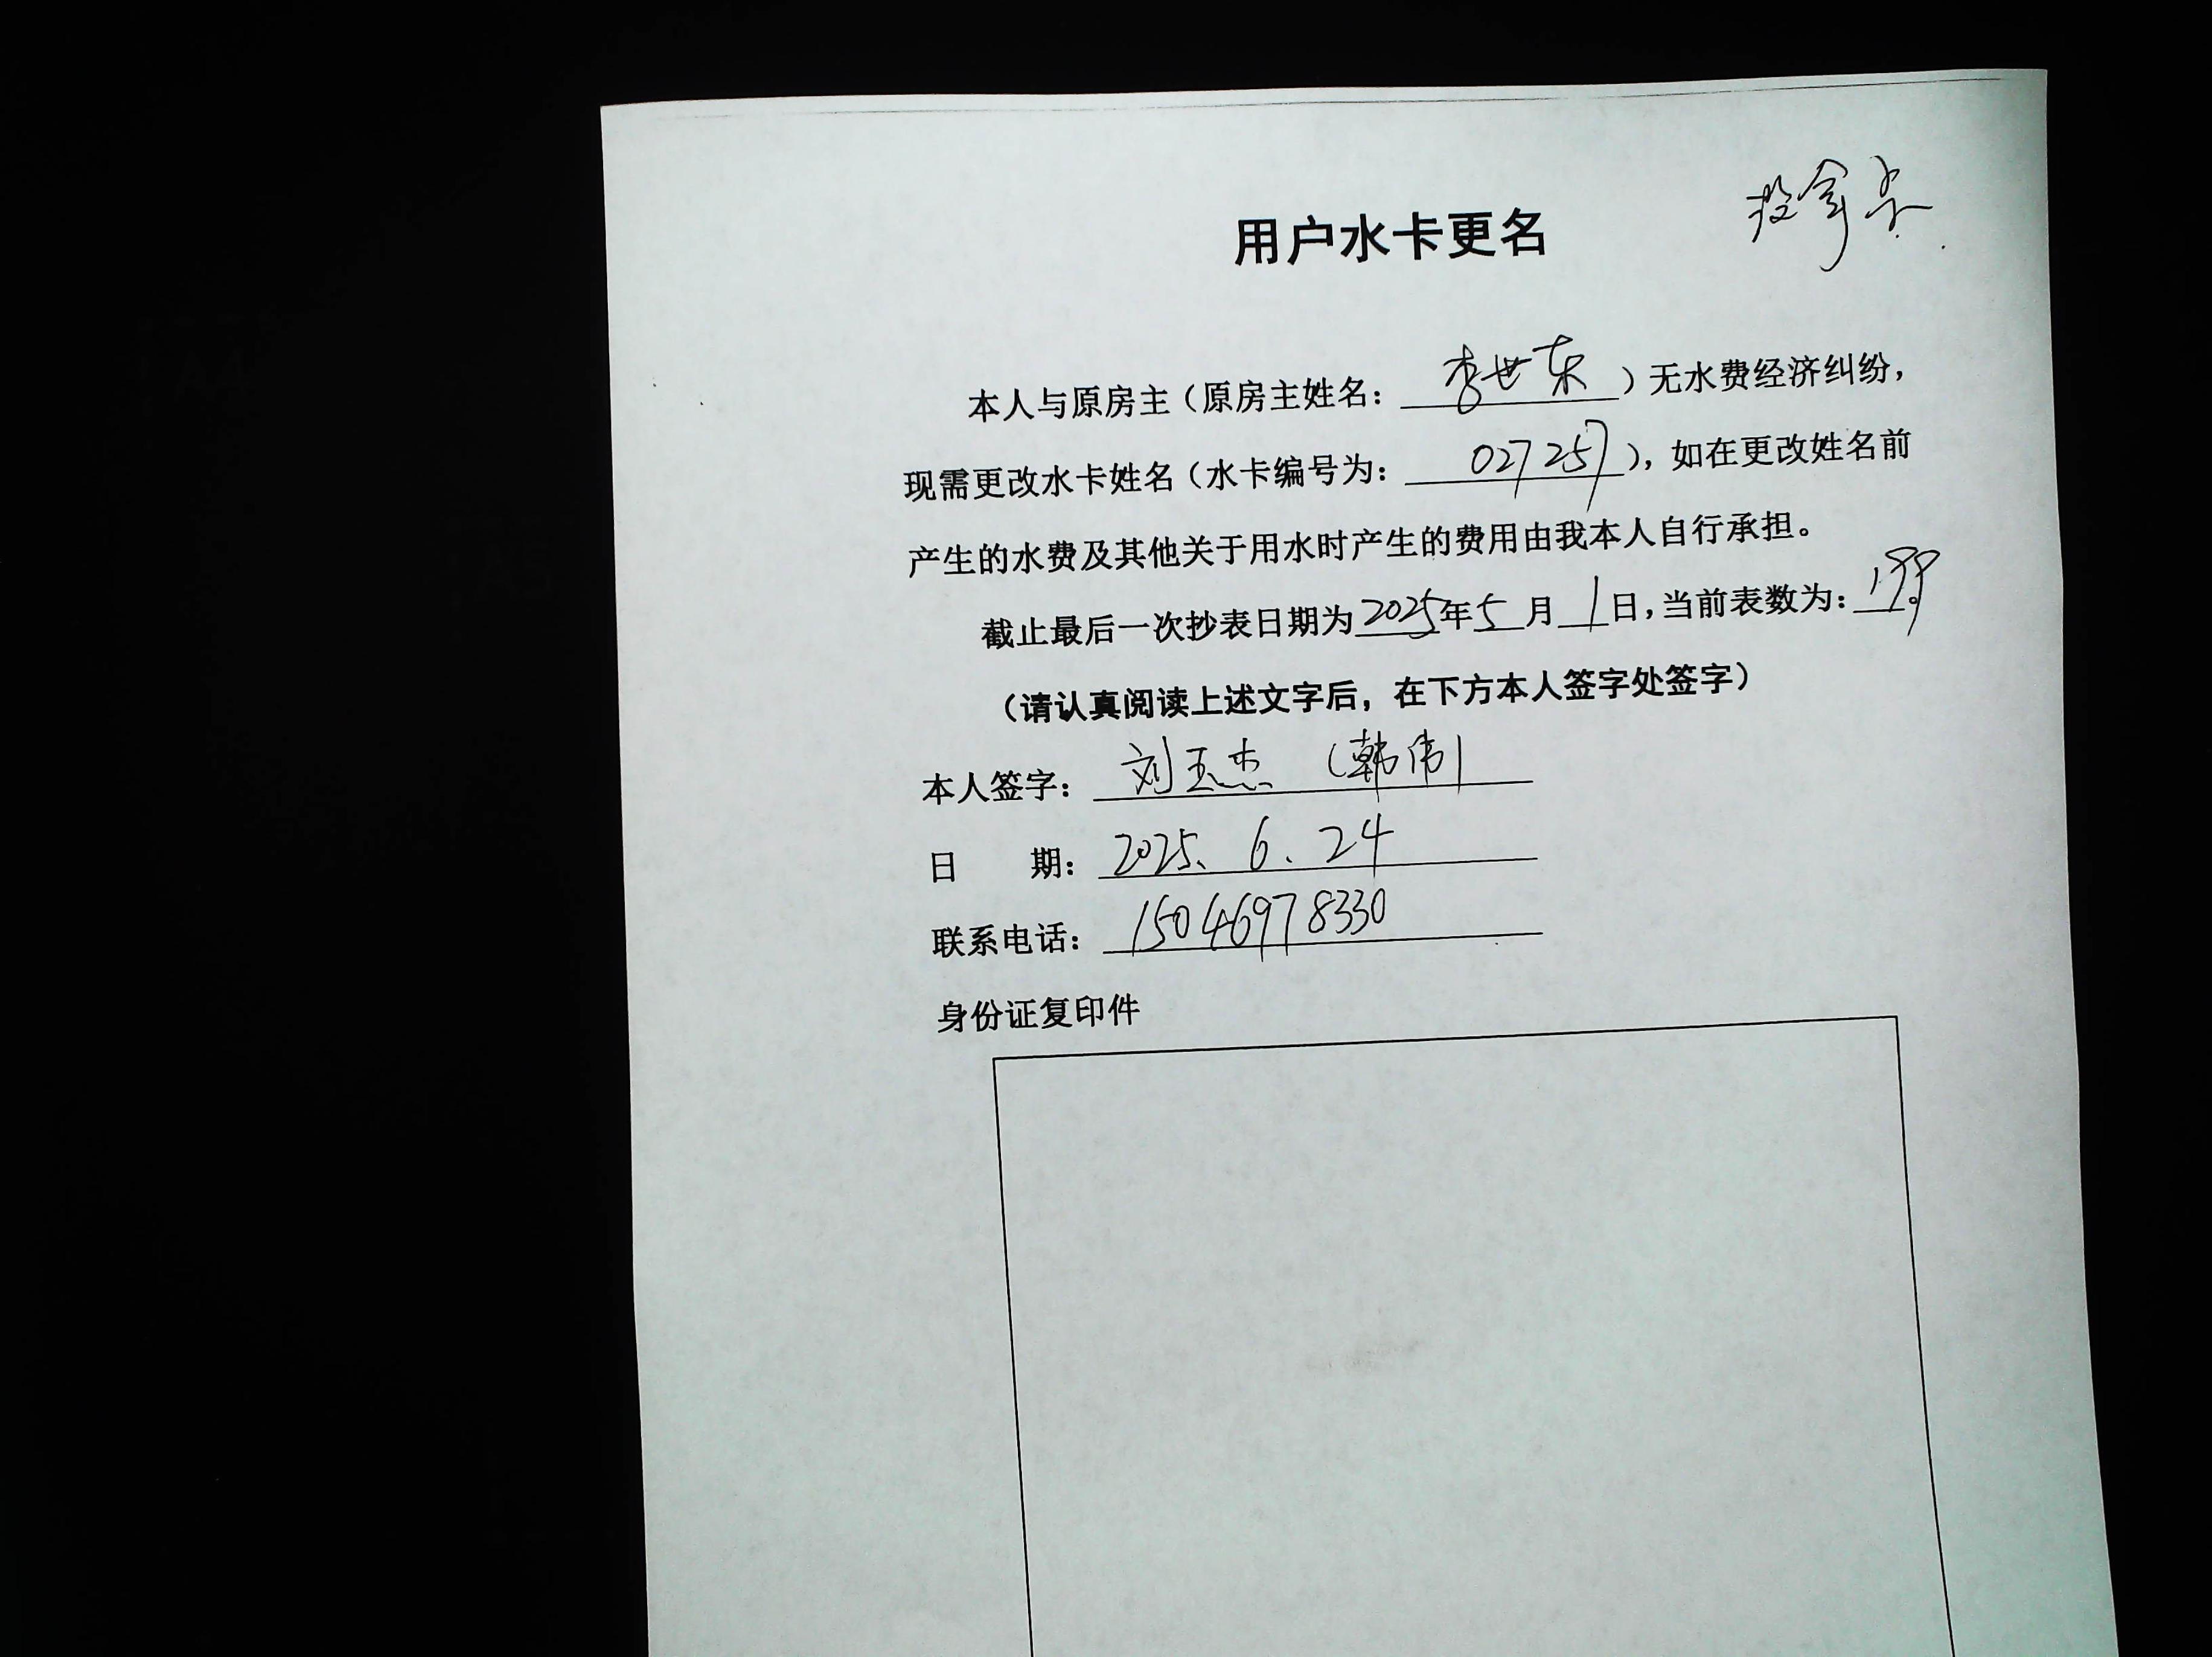 用户水卡更名
本人与原房主（原房主姓名：李世东）无水费经济纠纷，
现需更改水卡姓名（水卡编号为：027257），如在更改姓名前
产生的水费及其他关于用水时产生的费用由我本人自行承担。
截止最后一次抄表日期为2025年5月1日，当前表数为：
（请认真阅读上述文字后，在下方本人签字处签字）
本人签字：刘玉杰（韩伟）
日 期：2025、6、24
联系电话：15046978330
身份证复印件